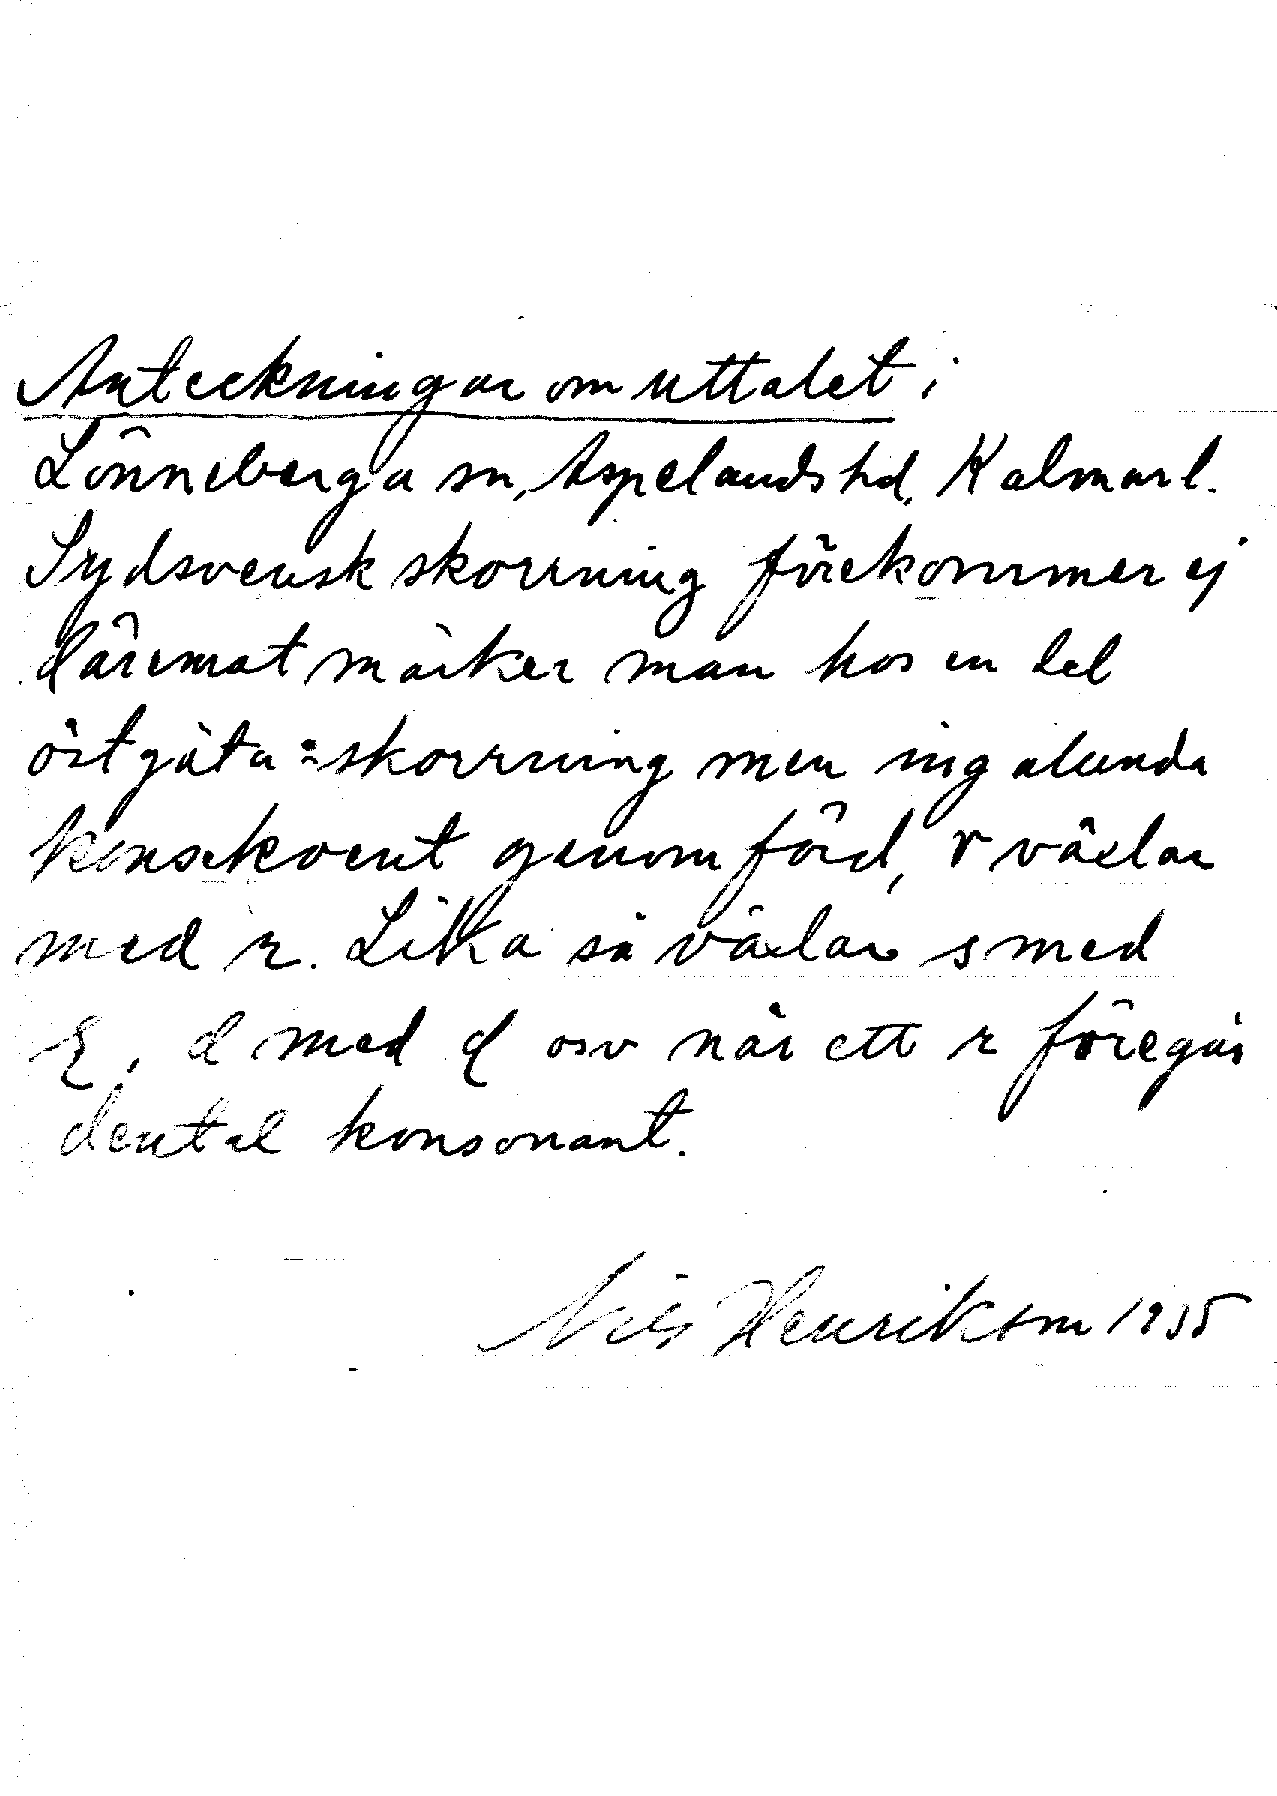 Anteckningar om uttalet i
Lönneberga sn, Aspelands hd, Kalmar l.
Sydsvensk skorrning förekommer ej
däremot märker man hos en del
östgöta-skorrning men ingalunda
konsekvent genomförd, r växlar
med r. Lika så växlar s med
, d med  osv när ett r föregår
dental konsonant.
Nils Henrikson 1935